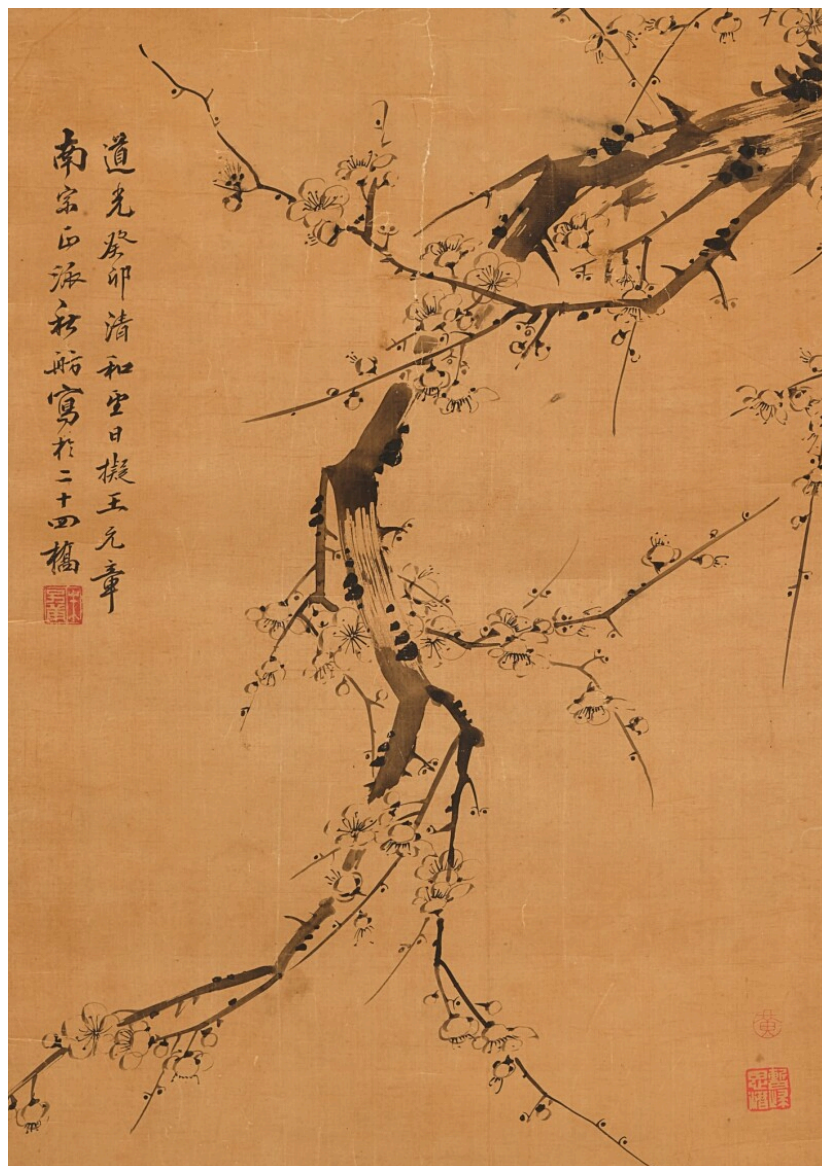 道光癸卯清和望日擬王元章
南宗正派秋舫寫於二十四橋
黃